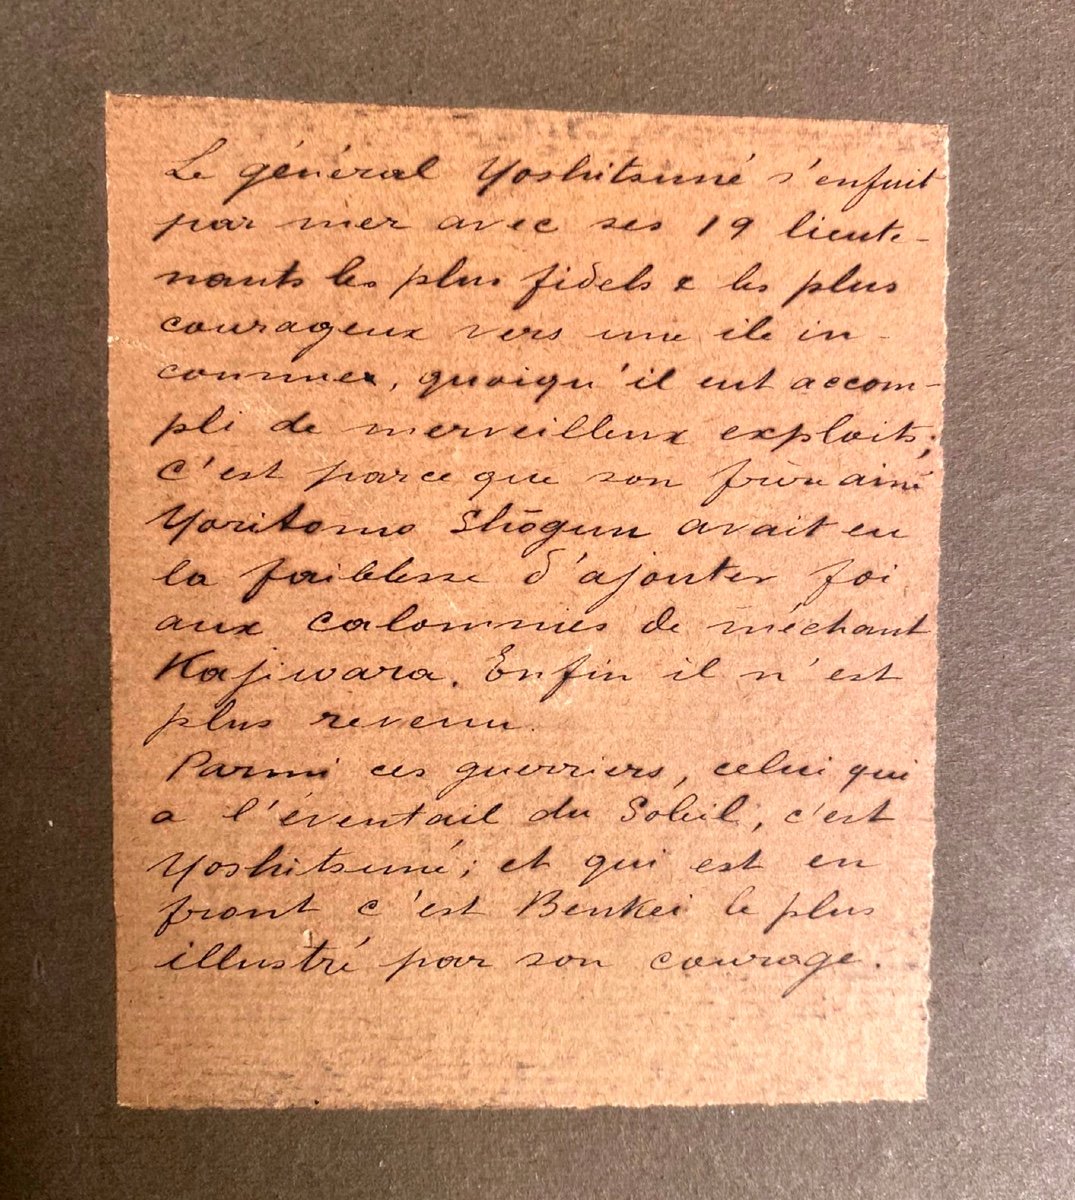 Le général Yoshitsuné s'enfuit
par mer avec ses 19 lieute-
nants les plus fidels & les plus
courageux vers une ile in-
connue, quoiqu'il eut accom-
pli de merveilleux exploits;
c'est parce que son frère ainé
Yoritomo Shōgun avait eu
la faiblesse d'ajouter foi
aux calomnies de méchant
Kajiwara. Enfin il n'est
plus revenu.
Parmi ces guerriers, celui qui
a l'éventail du Soleil, c'est
Yoshitsuné; et qui est en
front c'est Benkei le plus
illustré par son courage.